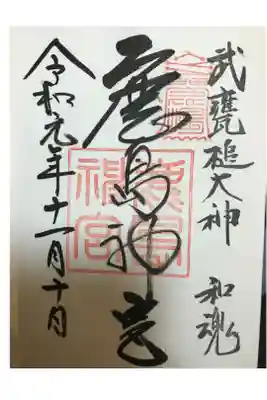 武甕槌大神
和魂
鹿島神宮
鹿島
神宮
令和元年十一月十日